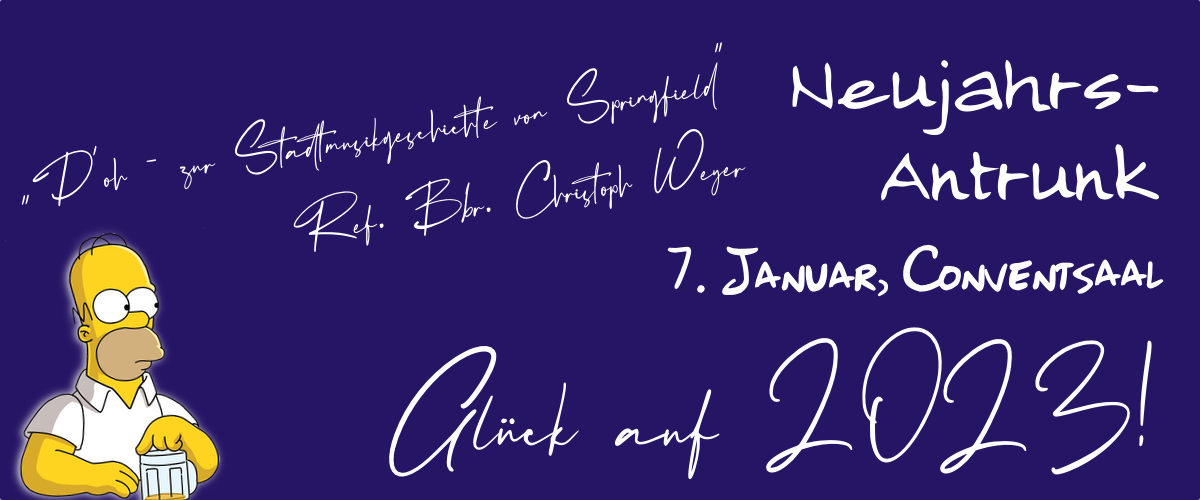 „D'oh - zur Stadtmusikgeschichte von Springfield"
Ref. Bbr. Christoph Weyer
Neujahrs-
Antrunk
7. Januar, Conventsaal
Glück auf 2023!